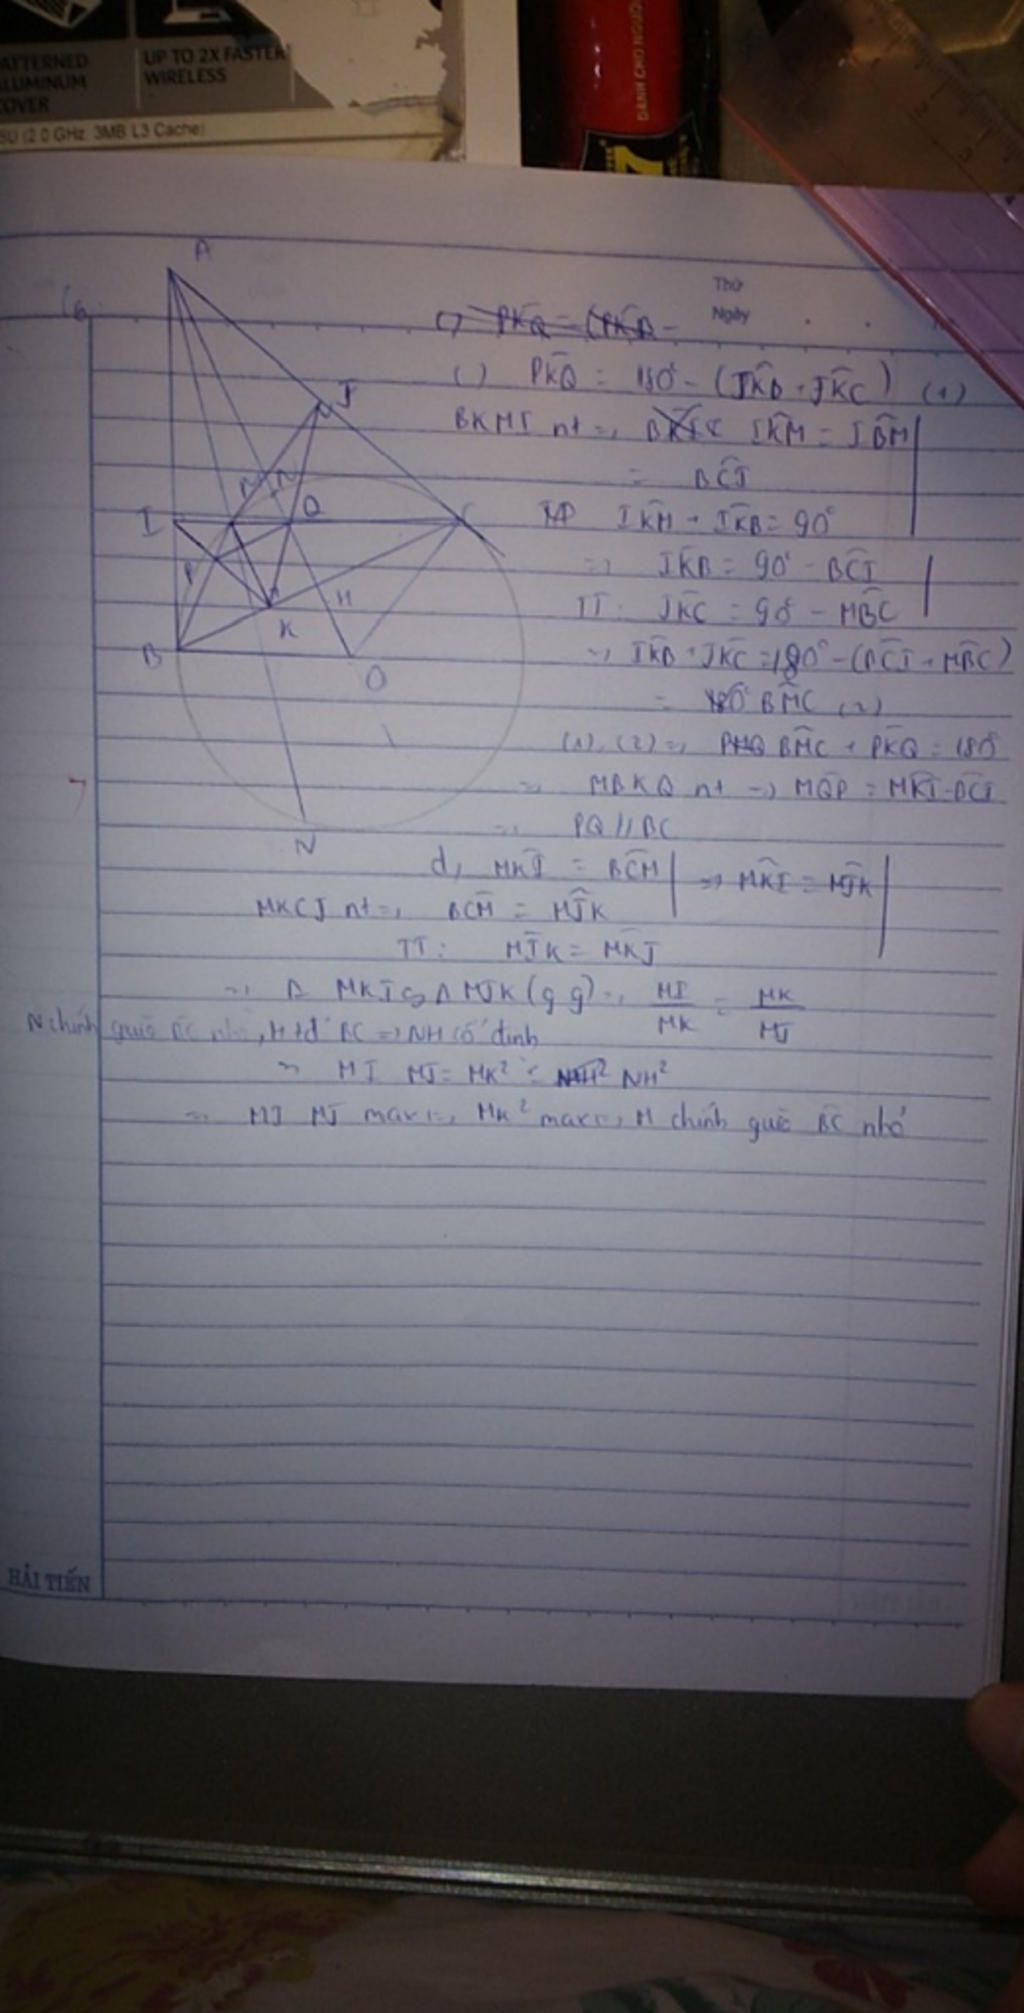 ATTERNED
ALUMINUM
COVER
UP TO 2X FASTER
WIRELESS
5U (2.0 GHz, 3MB L3 Cache)
DÀNH CHO NGƯỜI
7
Thứ
Ngày
A
J
I
Q
C
P
K
H
B
O
N
c) PKQ = 180° - (IKB + JKC) (1)
BKMI nt => IKM = IBM
= BCI
IKM + IKB = 90°
=> IKB = 90° - BCI
TT: JKC = 90° - MBC
=> IKB + JKC = 180° - (BCI + MBC)
= BMC (2)
(1), (2) => BMC + PKQ = 180°
=> MPKQ nt => MQP = MKI = BCI
=> PQ // BC
d, MKI = BCM => MKI = MJK
MKCJ nt => BCM = MJK
TT: MIK = MKJ
=> Δ MKI ∽ Δ MJK (g g) => MI/MK = MK/MJ
N chính giữa BC nhỏ, H tđ BC => NH cố định
=> MI MJ = MK² ≤ NH²
=> MI MJ max => MK² max => M chính giữa BC nhỏ
HẢI TIẾN